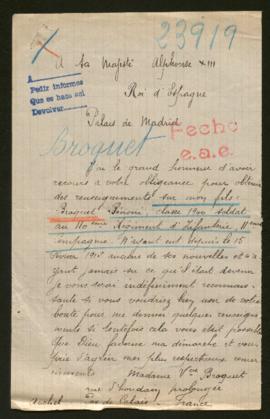 23919
A Sa Majesté Alphonse XIII
A
Pedir informes
Que es baso así
Devolver
Roi d'Espagne
Palais de Madrid
Fecho
e.a.e.
Broquet
J'ai le grand honneur d'avoir
recours à votre obligeance pour obtenir
des renseignements sur mon fils
Broquet classe 1900 soldat
au 110ème Régiment d'Infanterie, 11ème
compagnie. N'ayant eu depuis le 15
février 1915 aucune de ses nouvelles et
jamais su ce qu'il était devenu
je vous serai indéfiniment reconnais-
sante si vous voudriez bien user de votre
bonté pour me donner quelques renseigne-
ments si toutefois cela vous était possible
Que Dieu favorise ma démarche et vous
prie d'agréer mes plus respectueux remer-
ciements Madame Vve Broquet
rue d'houdain prolongée
Pas de Calais France